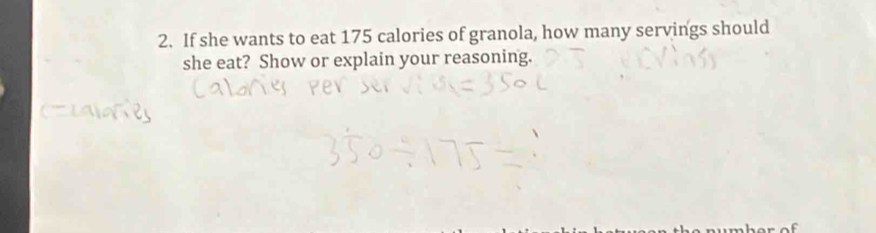 2. If she wants to eat 175 calories of granola, how many servings should
she eat? Show or explain your reasoning. 0.5 servings
Calories per serving = 350 c
c=calories
350 ÷ 175 =
number of